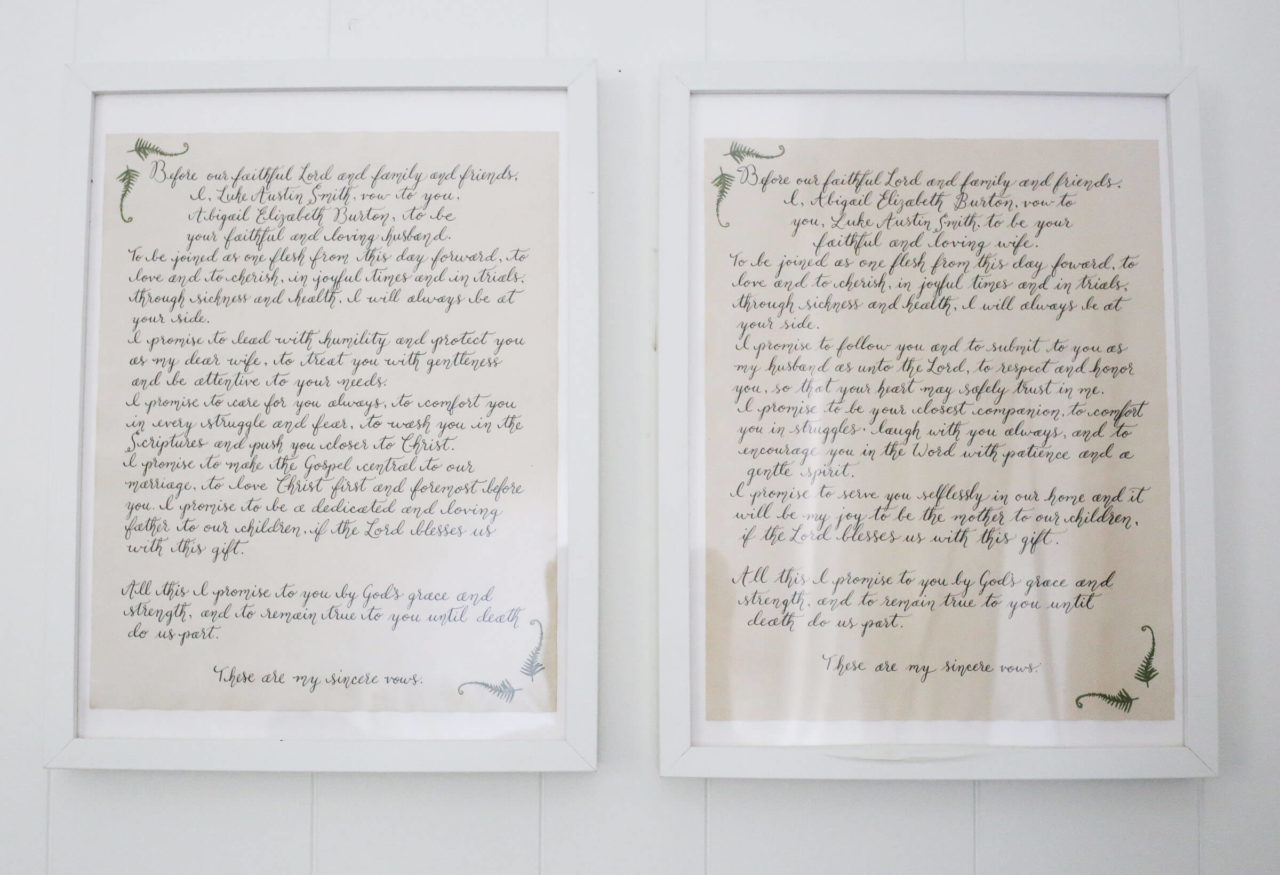 Before our faithful Lord and family and friends,
I, Luke Austin Smith, vow to you,
Abigail Elizabeth Burton, to be
your faithful and loving husband.
To be joined as one flesh from this day forward, to
love and to cherish, in joyful times and in trials,
through sickness and health, I will always be at
your side.
I promise to lead with humility and protect you
as my dear wife, to treat you with gentleness
and be attentive to your needs.
I promise to care for you always, to comfort you
in every struggle and fear, to wash you in the
Scriptures and push you closer to Christ.
I promise to make the Gospel central to our
marriage, to love Christ first and foremost before
you. I promise to be a dedicated and loving
father to our children, if the Lord blesses us
with this gift.
All this I promise to you by God's grace and
strength, and to remain true to you until death
do us part.
These are my sincere vows.
Before our faithful Lord and family and friends,
I, Abigail Elizabeth Burton, vow to
you, Luke Austin Smith, to be your
faithful and loving wife.
To be joined as one flesh from this day foward, to
love and to cherish, in joyful times and in trials,
through sickness and health, I will always be at
your side.
I promise to follow you and to submit to you as
my husband as unto the Lord, to respect and honor
you, so that your heart may safely trust in me.
I promise to be your closest companion, to comfort
you in struggles, laugh with you always, and to
encourage you in the Word with patience and a
gentle spirit.
I promise to serve you selflessly in our home and it
will be my joy to be the mother to our children,
if the Lord blesses us with this gift.
All this I promise to you by God's grace and
strength, and to remain true to you until
death do us part.
These are my sincere vows.